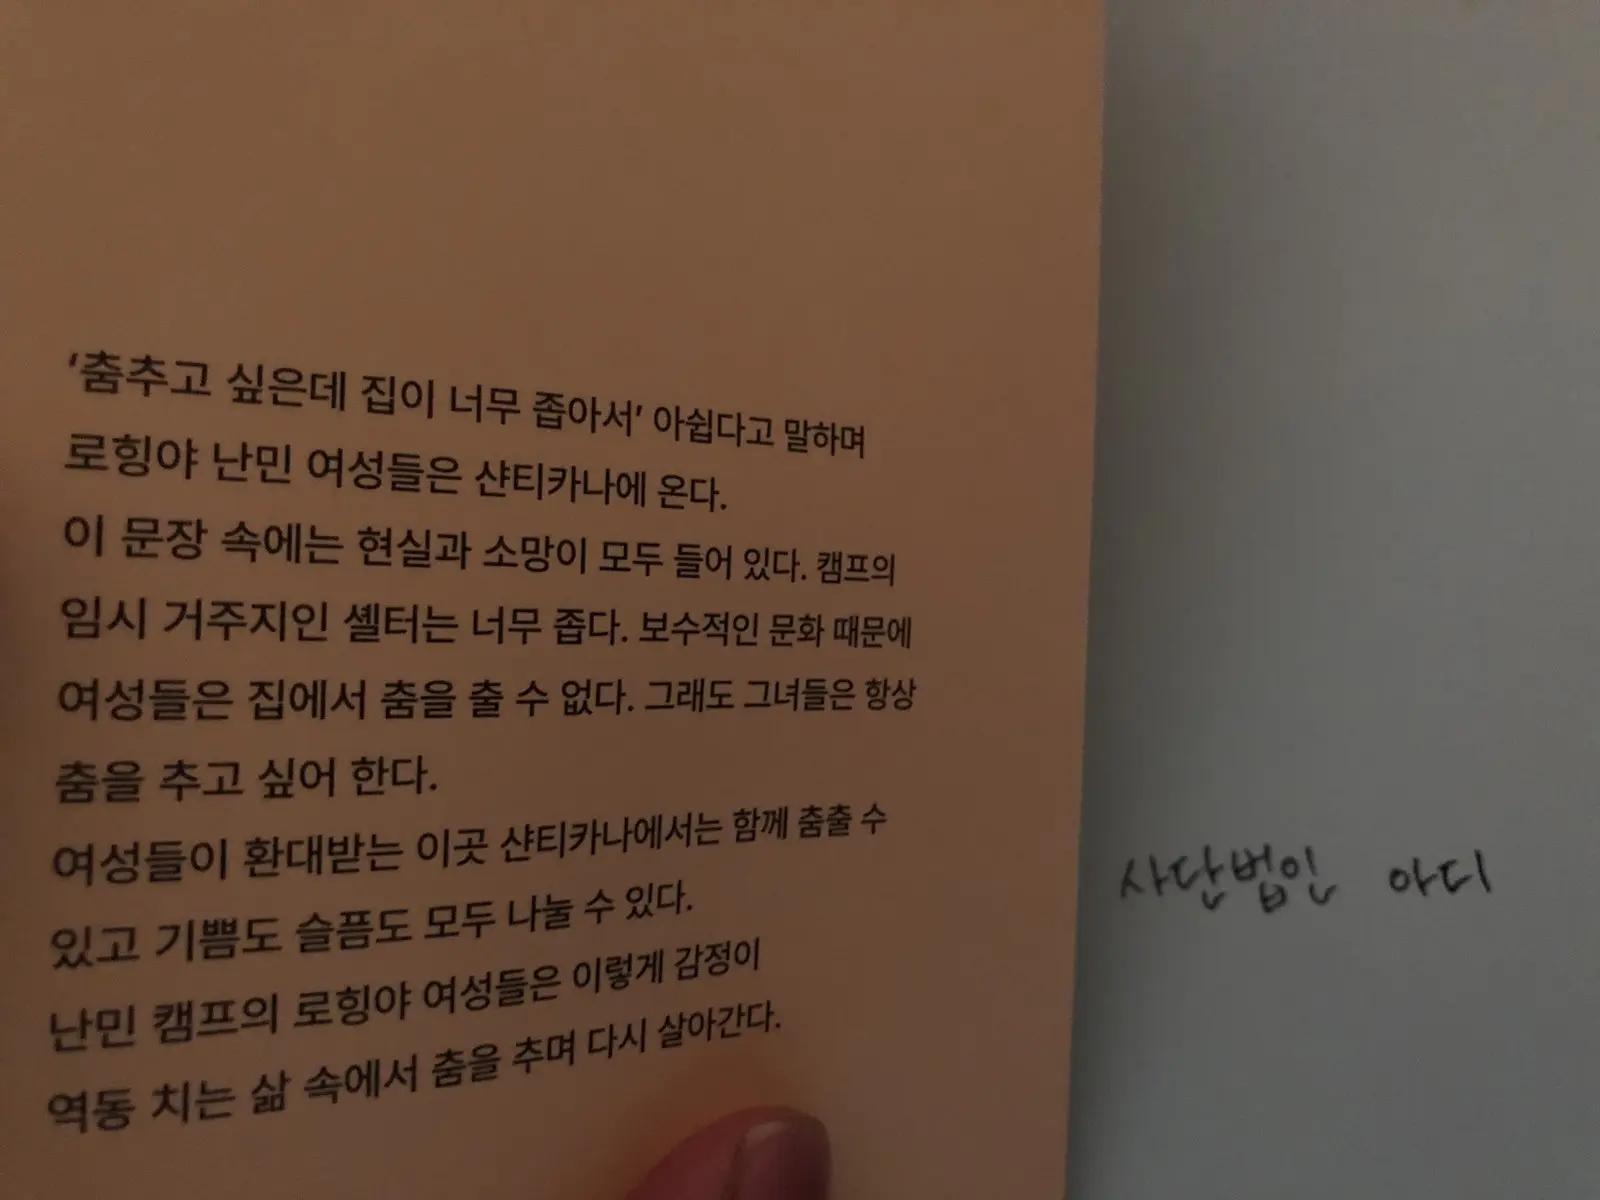 ‘춤추고 싶은데 집이 너무 좁아서’ 아쉽다고 말하며
로힝야 난민 여성들은 샨티카나에 온다.
이 문장 속에는 현실과 소망이 모두 들어 있다. 캠프의
임시 거주지인 셸터는 너무 좁다. 보수적인 문화 때문에
여성들은 집에서 춤을 출 수 없다. 그래도 그녀들은 항상
춤을 추고 싶어 한다.
여성들이 환대받는 이곳 샨티카나에서는 함께 춤출 수
있고 기쁨도 슬픔도 모두 나눌 수 있다.
난민 캠프의 로힝야 여성들은 이렇게 감정이
역동 치는 삶 속에서 춤을 추며 다시 살아간다.
사단법인 아디